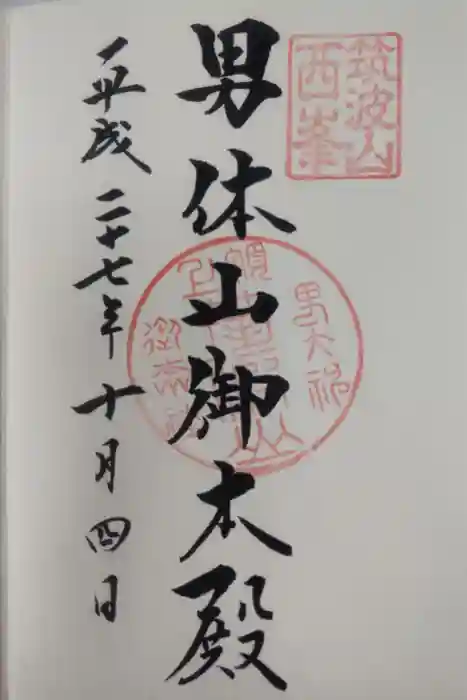 筑波山
西峯
男体山御本殿
平成二十七年十月四日
男大神